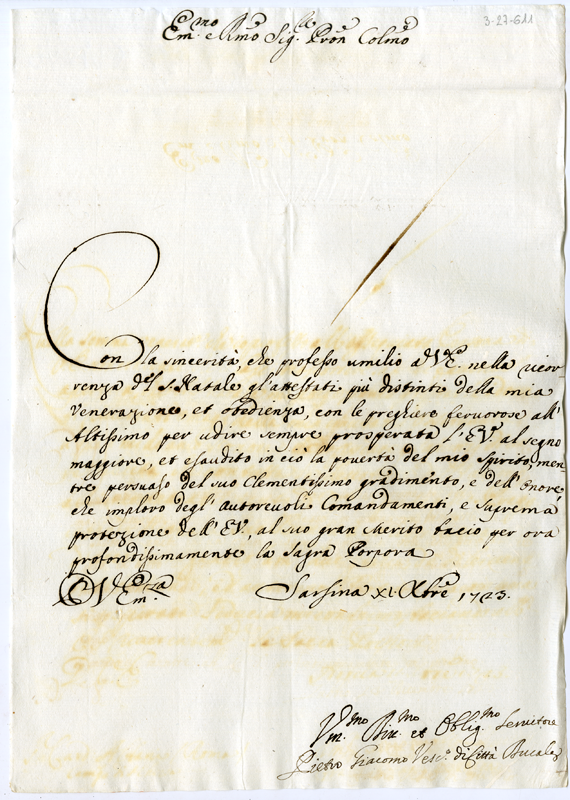 3-27-611
Em.mo e Rmo Sig.re Pron Colmo
Con la sincerità, che professo umilio a V.E. nella ricor-
renza del S. Natale gl'attestati più distinti della mia
venerazione, et obedienza, con le preghiere fervorose all'
Altissimo per udire sempre prosperata l'E.V. al segno
maggiore, et esaudito in ciò la povertà del mio spirito, men-
tre persuaso del suo Clementissimo gradimento, e dell'onore,
che imploro degl'autorevoli Comandamenti, e suprema
protezione dell'EV, al suo gran Merito bacio per ora
profondissimamente la Sagra Porpora
Di V. Em.za Sarsina XI. Xbre 1723.
Um.mo Dit.mo et Oblig.mo Servitore
Pietro Giacomo Vesc.o di Città Bucale